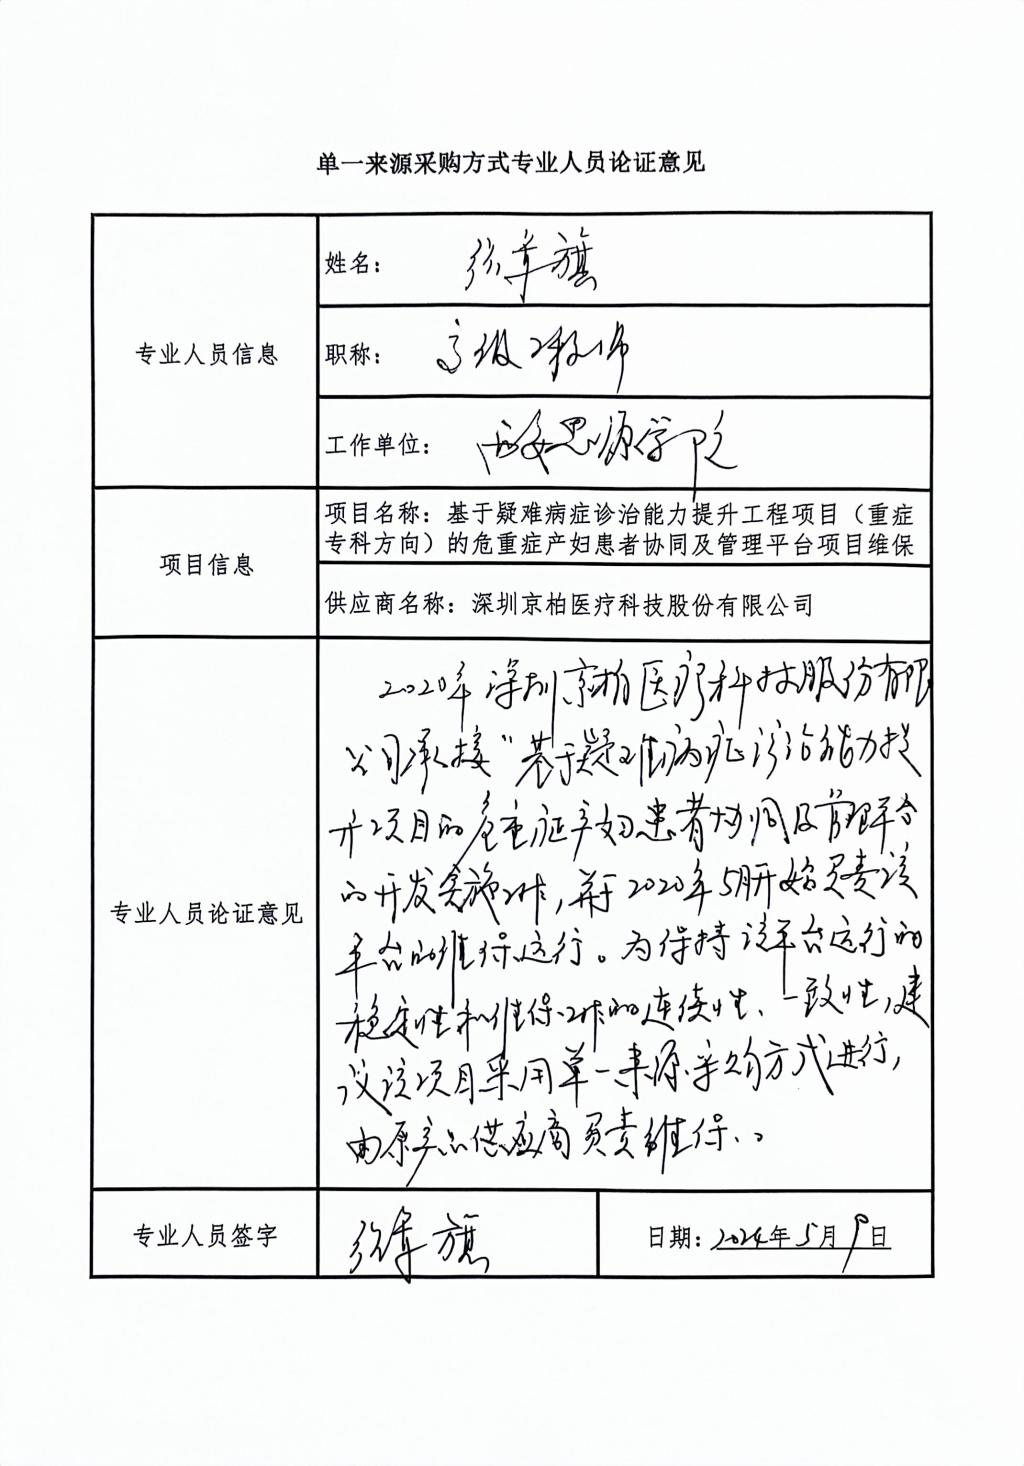 单一来源采购方式专业人员论证意见
专业人员信息
姓名：
职称：高级工程师
工作单位：西安思源学院
项目信息
项目名称：基于疑难病症诊治能力提升工程项目（重症
专科方向）的危重症产妇患者协同及管理平台项目维保
供应商名称：深圳京柏医疗科技股份有限公司
专业人员论证意见
2020年深圳京柏医疗科技股份有限
公司承接“基于疑难病症诊治能力提
升项目的危重症产妇患者协同及管理平台
的开发实施工作，并于2020年5月开始负责该
平台的维保运行。为保持该平台运行的
稳定性和维保工作的连续性、一致性，建
议该项目采用单一来源采购方式进行，
由原产品供应商负责维保。
专业人员签字
日期：2024年5月9日